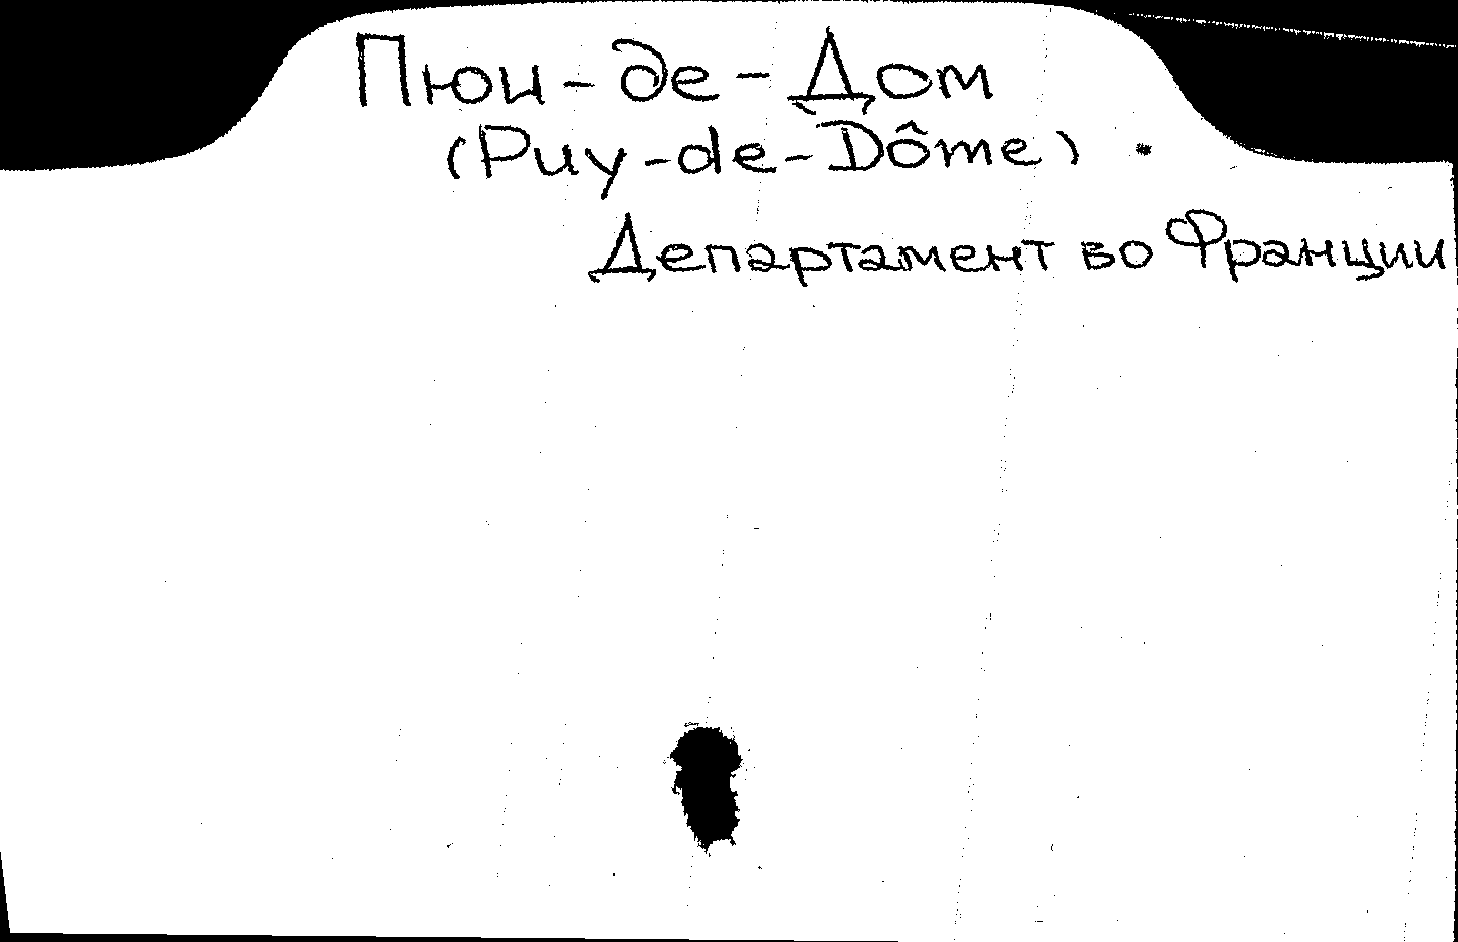 Пюи-де-Дом
(Puy-de-Dôme).
Департамент во Франции